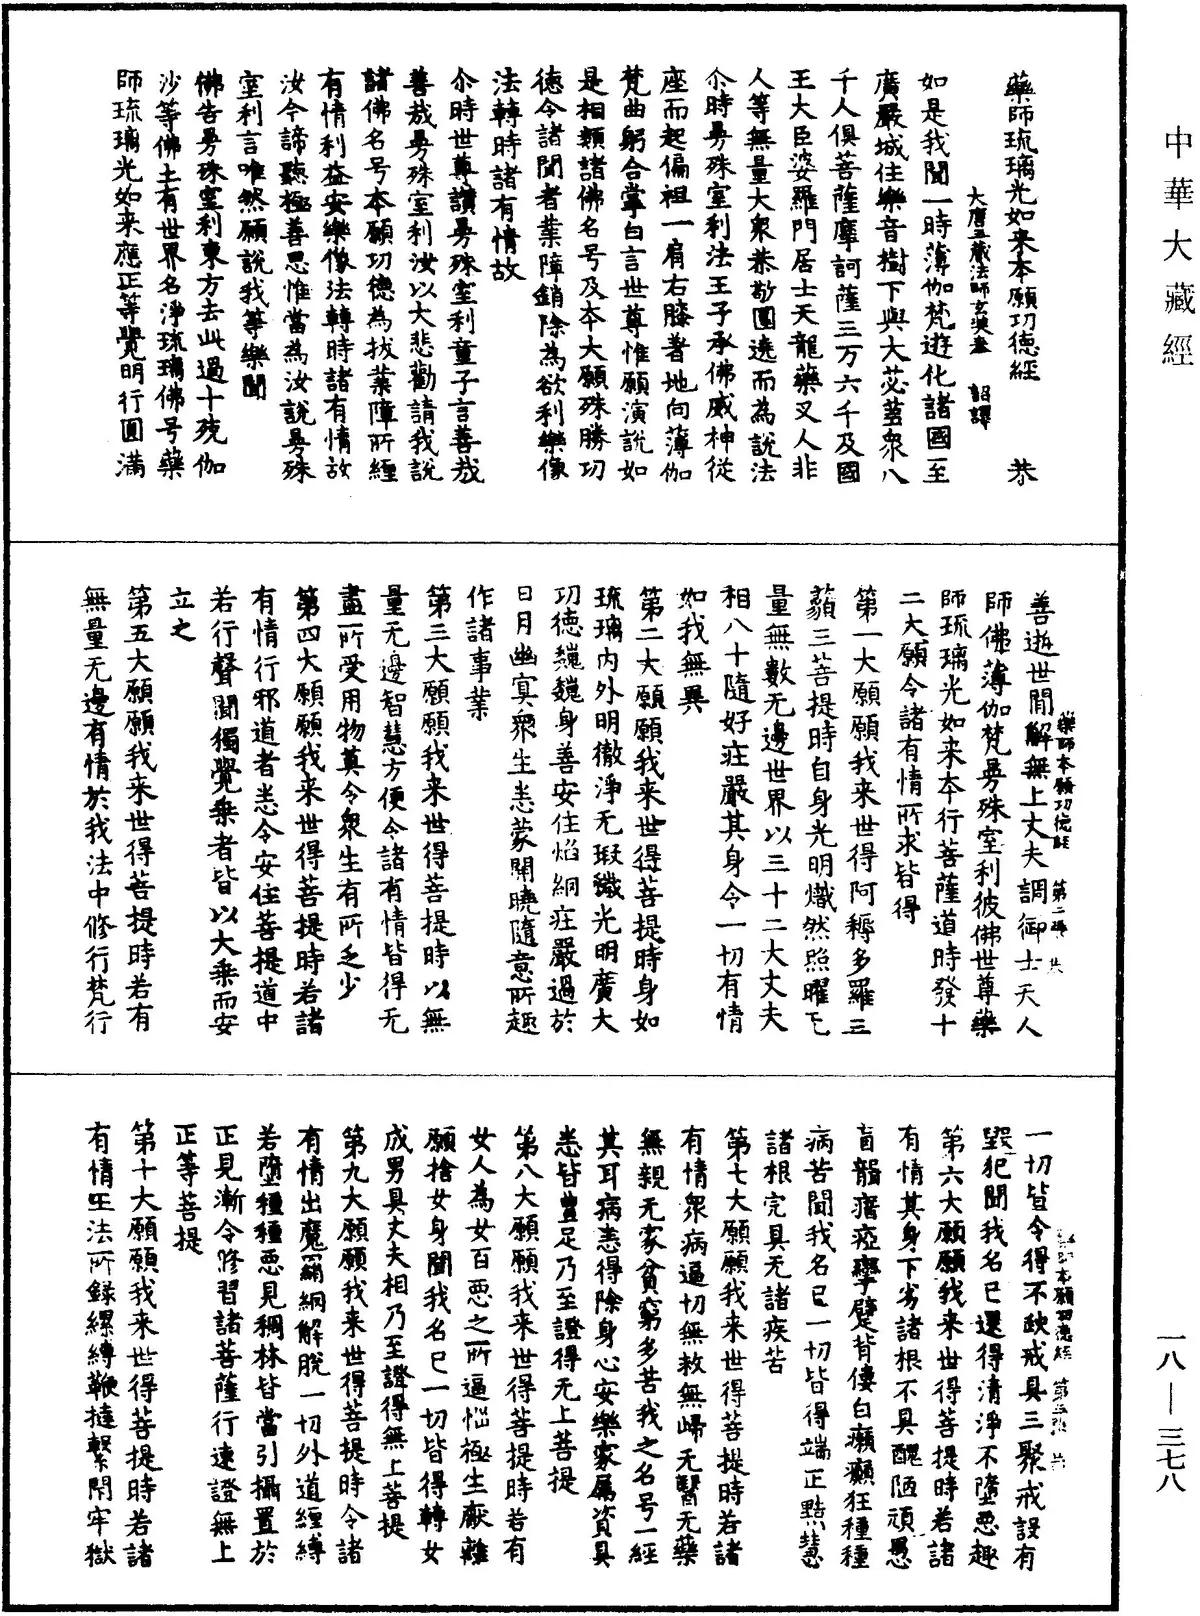 中華大藏經
藥師琉璃光如来本願功德經　恭
大唐三藏法師玄奘奉　詔譯
如是我聞一時薄伽梵遊化諸國至
廣嚴城住樂音樹下與大苾蒭衆八
千人俱菩薩摩訶薩三万六千及國
王大臣婆羅門居士天龍藥叉人非
人等無量大衆恭敬圍遶而為說法
尒時曼殊室利法王子承佛威神從
座而起偏袒一肩右膝著地向薄伽
梵曲躬合掌白言世尊惟願演說如
是相類諸佛名号及本大願殊勝功
德令諸聞者業障銷除為欲利樂像
法轉時諸有情故
尒時世尊讚曼殊室利童子言善哉
善哉曼殊室利汝以大悲勸請我說
諸佛名号本願功德為拔業障所纏
有情利益安樂像法轉時諸有情故
汝今諦聽極善思惟當為汝說曼殊
室利言唯然願說我等樂聞
佛告曼殊室利東方去此過十殑伽
沙等佛土有世界名淨琉璃佛号藥
師琉璃光如来應正等覺明行圓滿
藥師本願功德經　第二張　恭
善逝世間解無上丈夫調御士天人
師佛薄伽梵曼殊室利彼佛世尊藥
師琉璃光如来本行菩薩道時發十
二大願令諸有情所求皆得
第一大願願我来世得阿耨多羅三
藐三菩提時自身光明熾然照曜无
量無數无邊世界以三十二大丈夫
相八十隨好莊嚴其身令一切有情
如我無異
第二大願願我来世得菩提時身如
琉璃内外明徹淨无瑕穢光明廣大
功德巍巍身善安住焰綱莊嚴過於
日月幽冥衆生悉蒙開曉隨意所趣
作諸事業
第三大願願我来世得菩提時以無
量无邊智慧方便令諸有情皆得无
盡所受用物莫令衆生有所乏少
第四大願願我来世得菩提時若諸
有情行邪道者悉令安住菩提道中
若行聲聞獨覺乘者皆以大乘而安
立之
第五大願願我来世得菩提時若有
無量无邊有情於我法中修行梵行
藥師本願功德經　第三張　恭
一切皆令得不缺戒具三聚戒設有
毀犯聞我名已還得清淨不墮惡趣
第六大願願我来世得菩提時若諸
有情其身下劣諸根不具醜陋頑愚
盲聾瘖瘂攣躄背僂白癩癲狂種種
病苦聞我名已一切皆得端正黠慧
諸根完具无諸疾苦
第七大願願我来世得菩提時若諸
有情衆病逼切無救無歸无醫无藥
無親无家貧窮多苦我之名号一經
其耳病悉得除身心安樂家屬資具
悉皆豐足乃至證得无上菩提
第八大願願我来世得菩提時若有
女人為女百惡之所逼惱極生厭離
願捨女身聞我名已一切皆得轉女
成男具丈夫相乃至證得無上菩提
第九大願願我来世得菩提時令諸
有情出魔羂網解脫一切外道纏縛
若墮種種惡見稠林皆當引攝置於
正見漸令修習諸菩薩行速證無上
正等菩提
第十大願願我来世得菩提時若諸
有情王法所錄縲縛鞭撻繫閉牢獄
一八—三七八